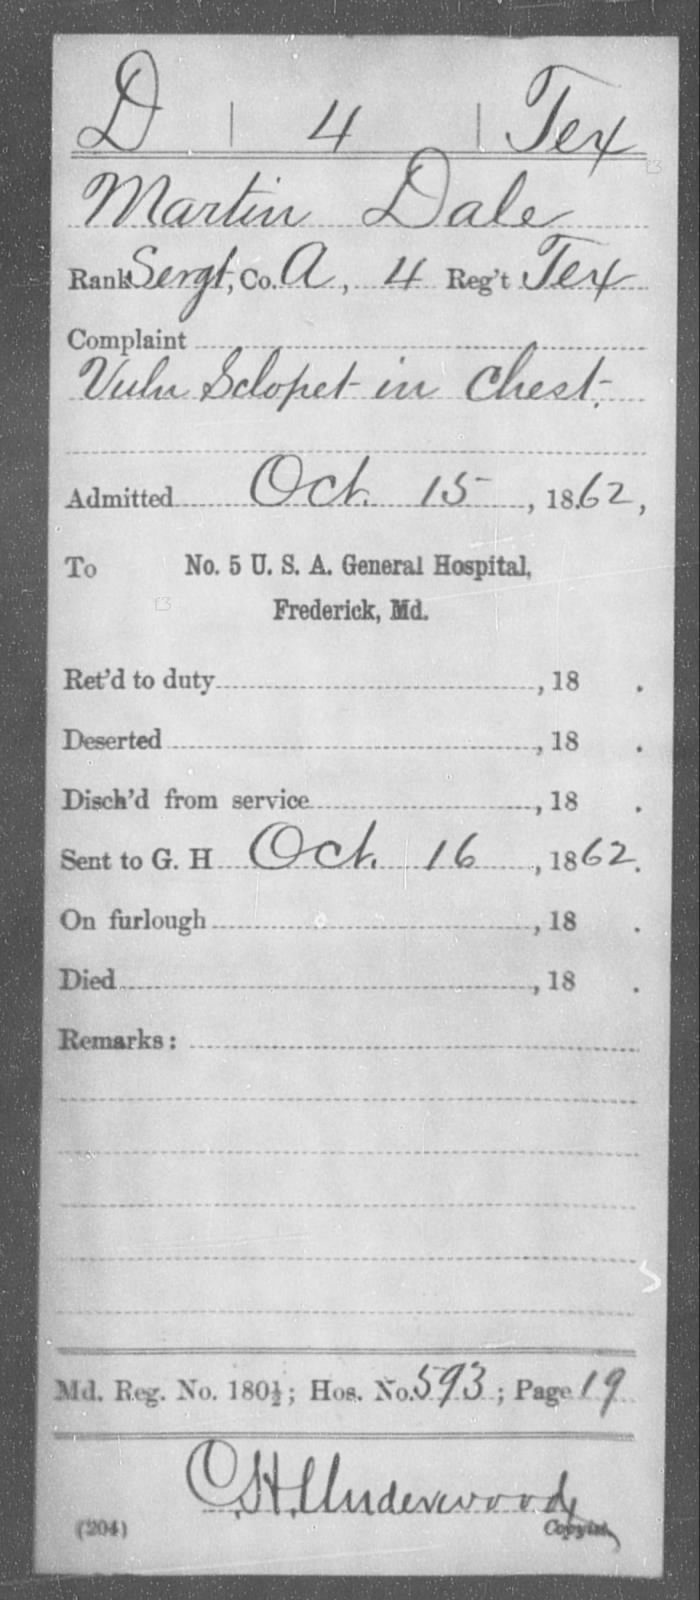 D | 4 | Tex
Martin Dale
Rank Sergt, Co. A, 4 Reg't Tex
Complaint
Vuln Sclopet in Chest.
Admitted Oct. 15, 1862,
To No. 5 U. S. A. General Hospital,
Frederick, Md.
Ret'd to duty , 18 .
Deserted , 18 .
Disch'd from service , 18 .
Sent to G. H Oct. 16, 1862.
On furlough , 18 .
Died , 18 .
Remarks:
Md. Reg. No. 180½; Hos. No. 593; Page 19
C.H. Underwood
(204) Copyist.